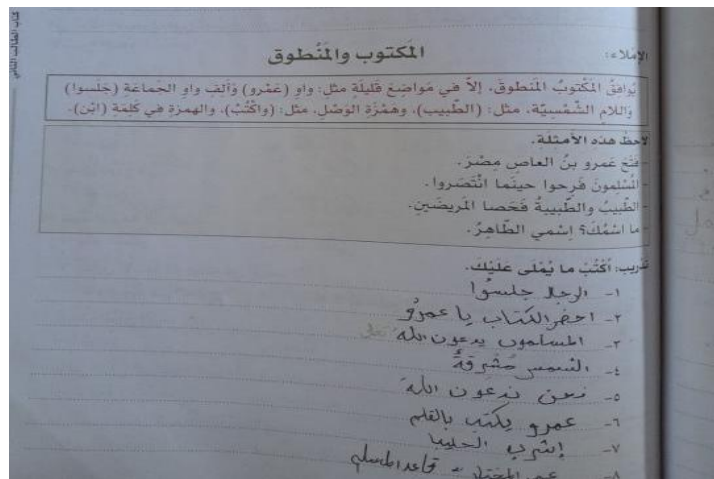 كتاب الطالب الثاني
الإملاء: المَكتوب والمَنْطوق
يُوافِقُ المَكْتوبُ المَنطوقَ، إلاَّ في مَواضِعَ قَليلَةٍ مثل: واوِ (عَمْرو) وَأَلِفِ واوِ الجَماعَةِ (جَلَسوا)
وَاللامِ الشَّمْسِيَّة، مثل: (الطَّبيب)، وهَمْزَةِ الوَصْلِ، مثل: (واكْتُبْ)، والهمزةِ في كَلِمَةِ (ابْن).
لاحظْ هذه الأمثلَة.
- فَتَحَ عَمرو بنُ العاصِ مِصْرَ.
- المُسْلِمونَ فَرِحوا حينَما انْتَصَروا.
- الطَّبيبُ والطَّبيبةُ فَحَصا المَريضَينِ.
- ما اسْمُكَ؟ إسْمي الطّاهِرُ.
تدريب: اُكْتُبْ ما يُمْلَى عَلَيْكَ.
١- الرجال جلسُوا
٢- احضر الكتاب يا عمرُو
٣- المسلمون يدعون اللهَ
٤- الشمس مُشرِقةٌ
٥- نحن ندعون اللهَ
٦- عمرو يكتب بالقلم
٧- إشرب الحليبا
٨-